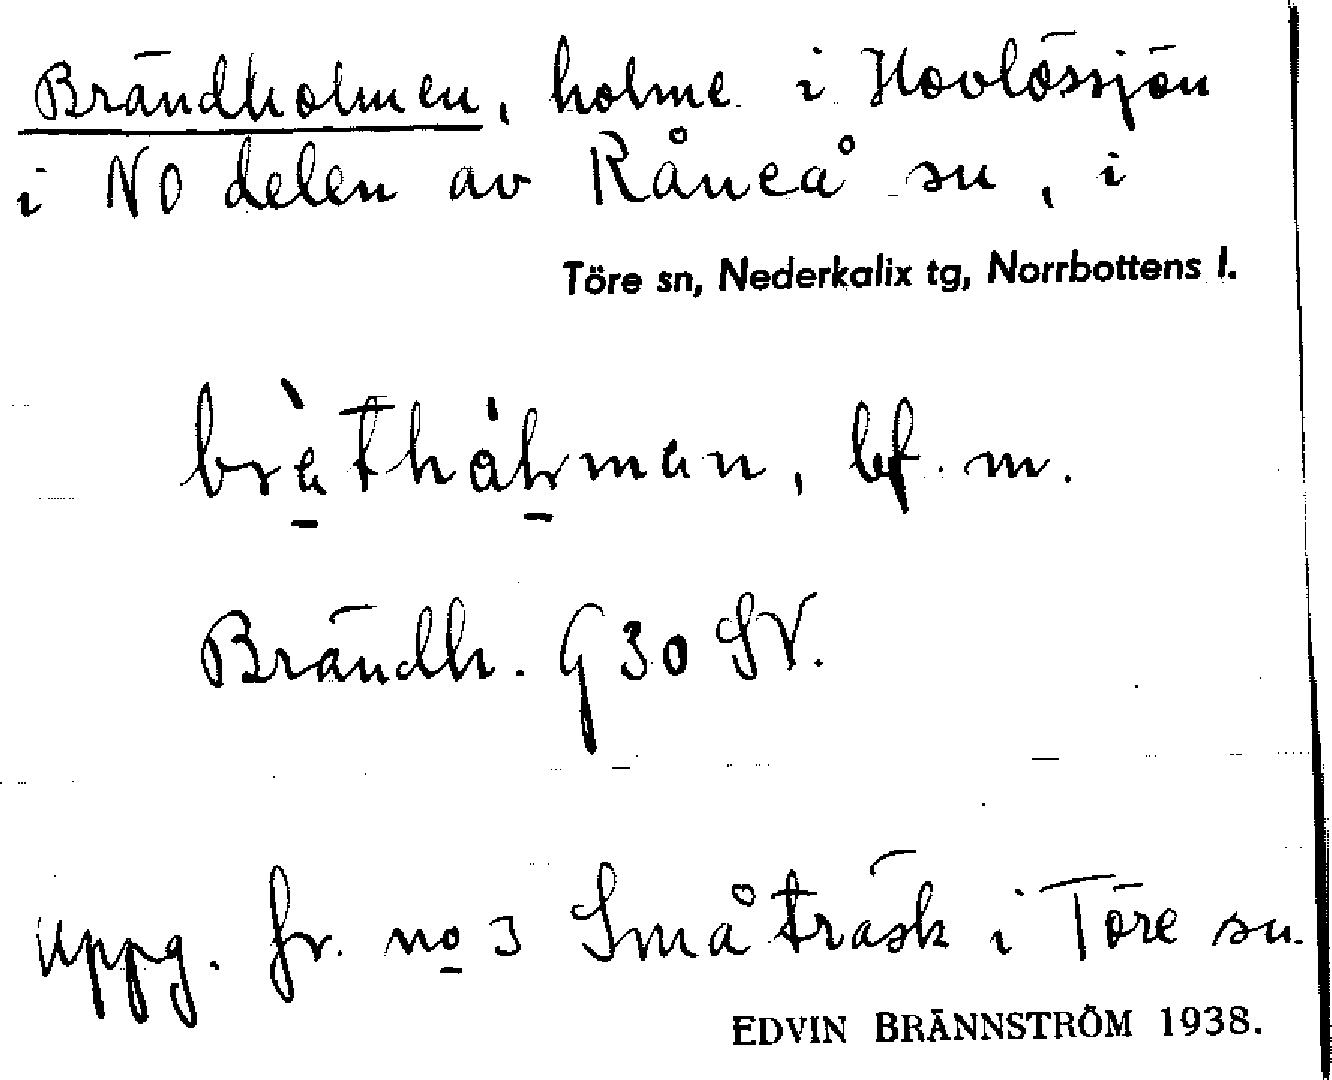 Brändholmen, holme i Hovlössjön
i NO delen av Råneå sn, i
Töre sn, Nederkalix tg, Norrbottens l.
bf. m.
Brändh. G 30 SV.
uppg. fr. no 3 Småträsk i Töre sn.
EDVIN BRÄNNSTRÖM 1938.